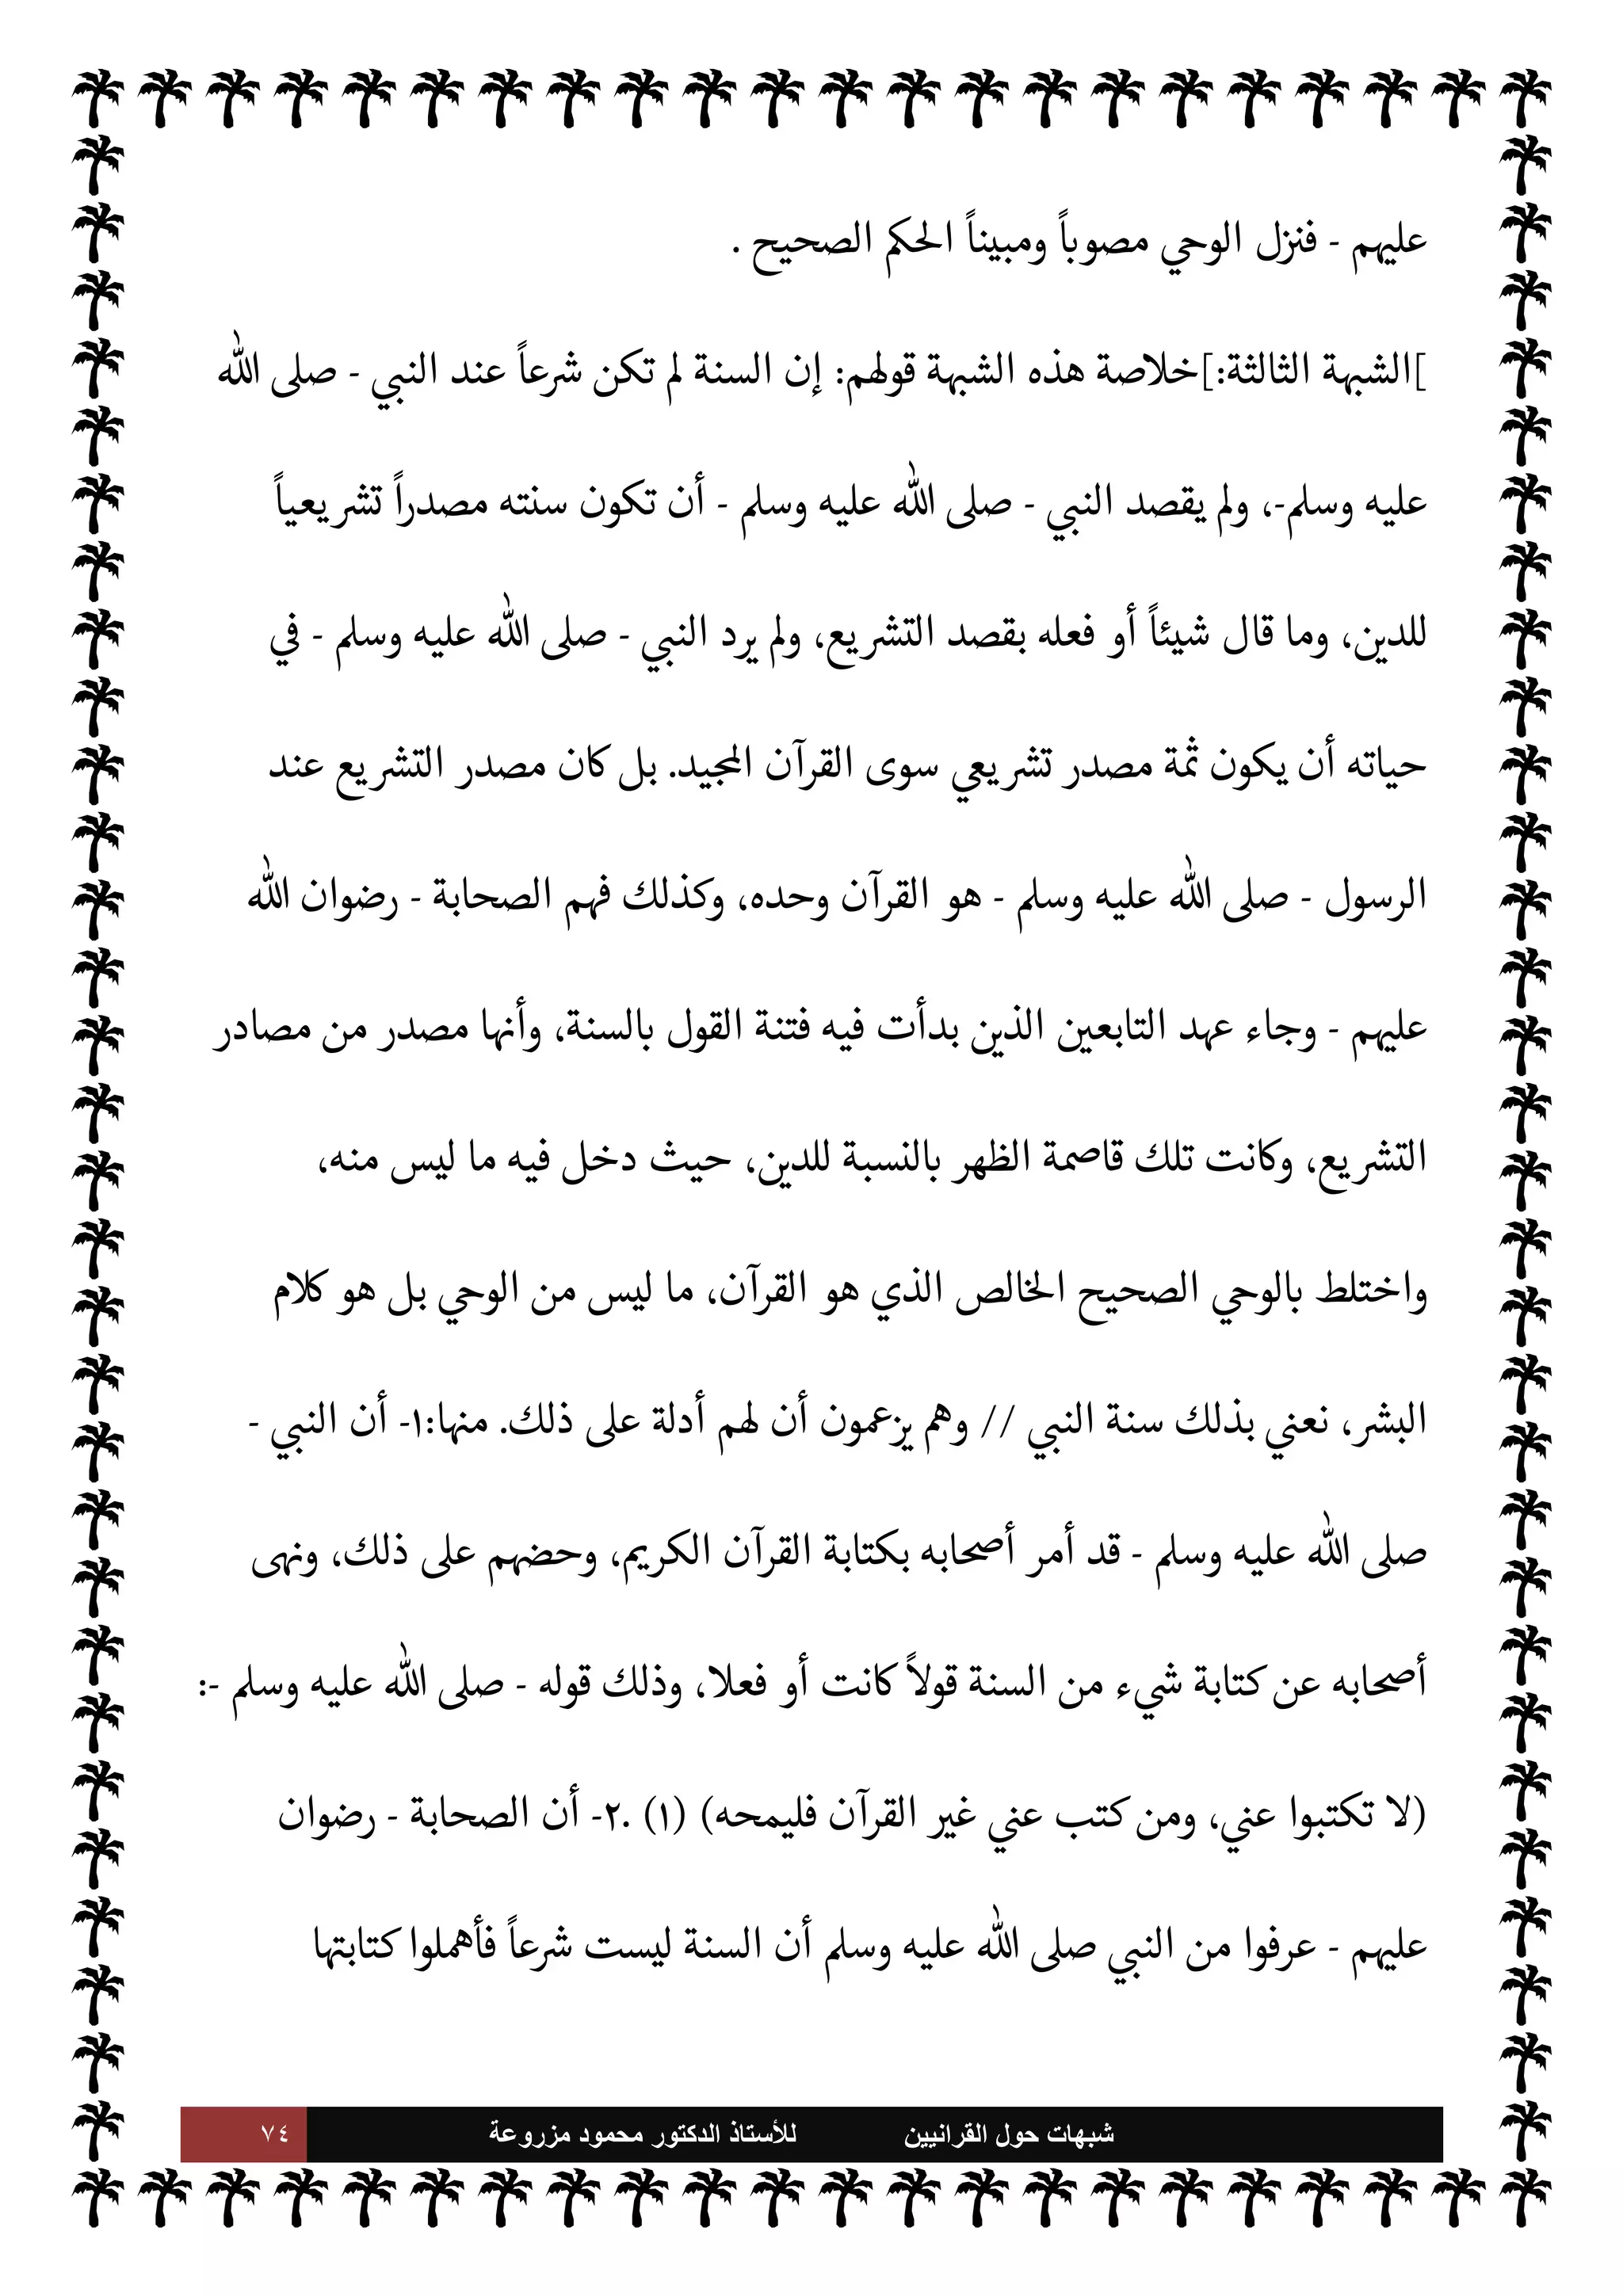 عليهم - فنزل الوحي مصوباً ومبيناً الحكم الصحيح .
]الشبهة الثالثة:[خلاصة هذه الشبهة قولهم: إن السنة لم تكن شرعاً عند النبي - صلى الله
عليه وسلم-، ولم يقصد النبي - صلى الله عليه وسلم - أن تكون سنته مصدراً تشريعياً
للدين، وما قال شيئاً أو فعله بقصد التشريع، ولم يرد النبي - صلى الله عليه وسلم - في
حياته أن يكون ثمة مصدر تشريعي سوى القرآن المجيد. بل كان مصدر التشريع عند
الرسول - صلى الله عليه وسلم - هو القرآن وحده، وكذلك فهم الصحابة - رضوان الله
عليهم - وجاء عهد التابعين الذين بدأت فيه فتنة القول بالسنة، وأنها مصدر من مصادر
التشريع، وكانت تلك قاصمة الظهر بالنسبة للدين، حيث دخل فيه ما ليس منه،
واختلط بالوحي الصحيح الخالص الذي هو القرآن، ما ليس من الوحي بل هو كلام
البشر، نعني بذلك سنة النبي // وهم يزعمون أن لهم أدلة على ذلك. منها:١- أن النبي -
صلى الله عليه وسلم - قد أمر أصحابه بكتابة القرآن الكريم، وحضهم على ذلك، ونهى
أصحابه عن كتابة شيء من السنة قولاً كانت أو فعلا، وذلك قوله - صلى الله عليه وسلم -:
(لا تكتبوا عني، ومن كتب عني غير القرآن فليمحه) (١) .٢- أن الصحابة - رضوان
عليهم - عرفوا من النبي صلى الله عليه وسلم أن السنة ليست شرعاً فأهملوا كتابتها
شبهات حول القرانيين للأستاذ الدكتور محمود مزروعة ٧٤